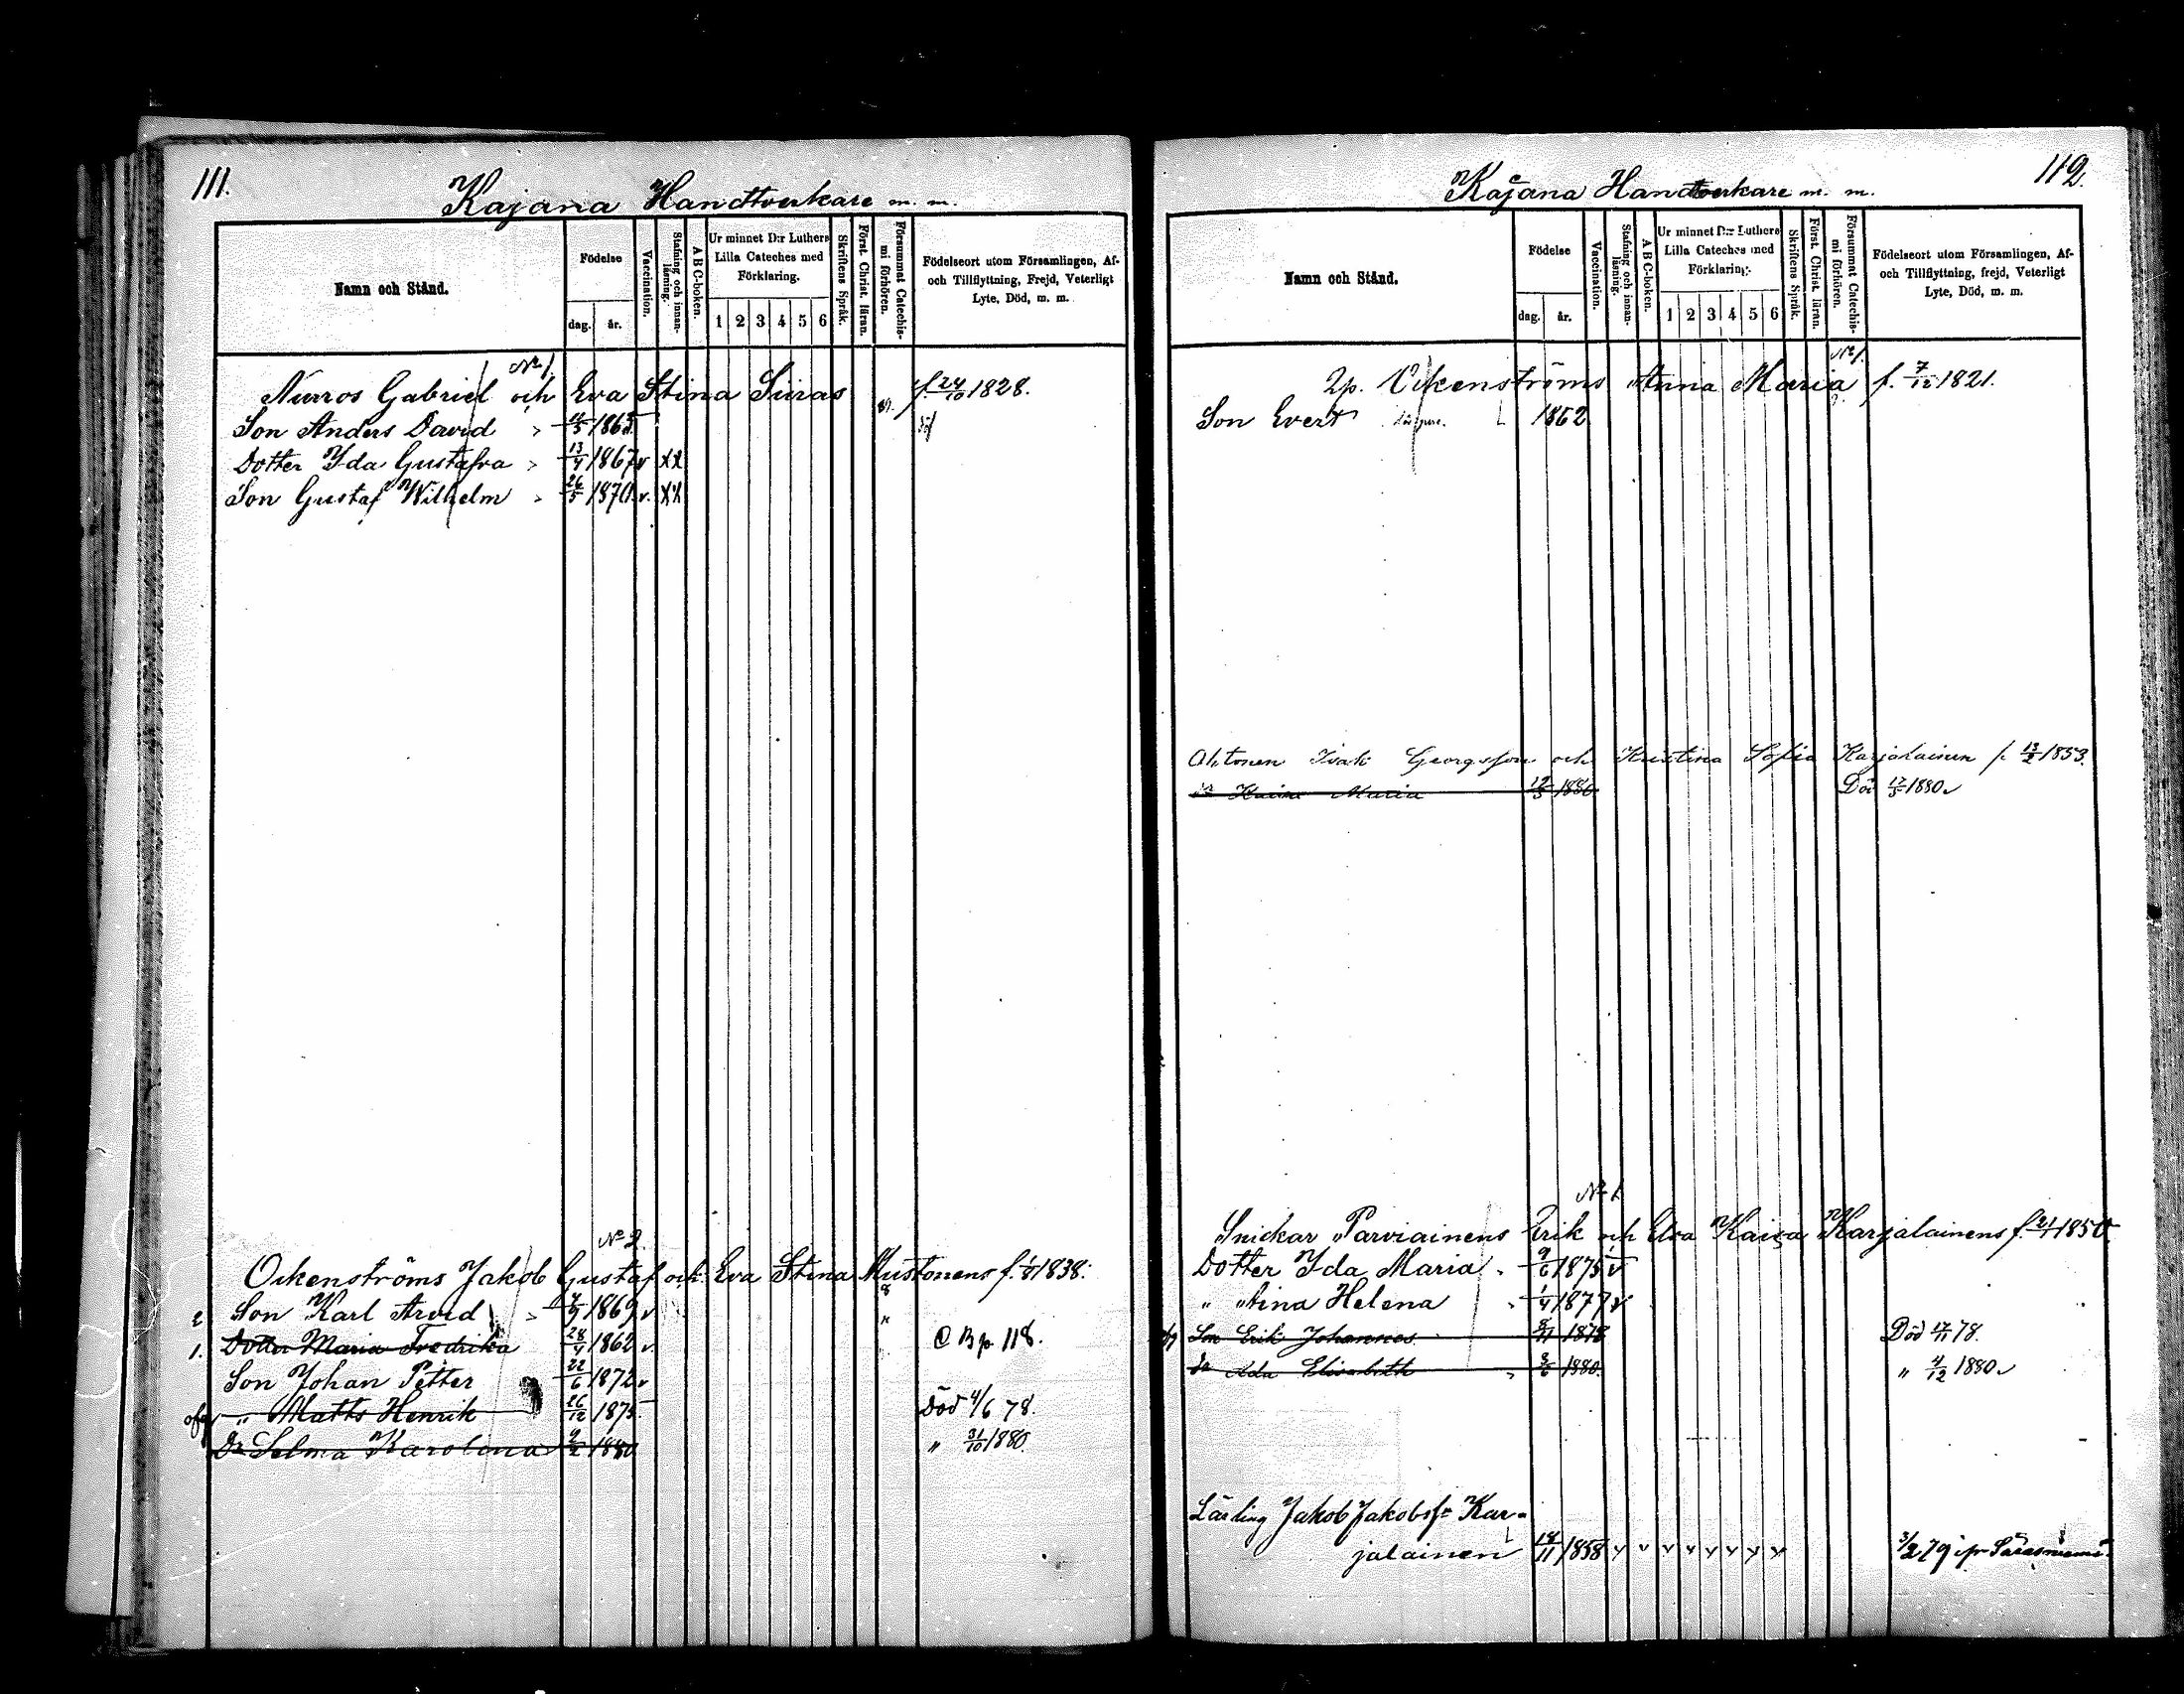 111.
Kajana Handtverkare m. m.
Namn och Stånd.
Födelse
dag.
år.
Vaccination.
Stafning och innan-läsning.
A B C-boken.
Ur minnet D:r Luthers Lilla Cateches med Förklaring.
1 2 3 4 5 6
Skriftens Språk.
Först. Christ. läran.
Försummat Catechis-mi förhören.
Födelseort utom Församlingen, Af- och Tillflyttning, Frejd, Veterligt Lyte, Död, m. m.
No 1.
Nurros Gabriel och Eva Stina Suras f. 24/10 1828.
Son Anders David 1863
Dotter Ida Gustafva 13/4 1867 v XX
Son Gustaf Wilhelm 26/5 1870 v. XX
No 2.
Ockenströms Jakob Gustaf och Eva Stina Mustonens f. 1838.
2 Son Karl Arvid 1869 v
1. Dotter Maria Fredrika 28/4 1862 v. C B p 118.
Son Johan Petter 22/6 1872 v
ofg " Matts Henrik 26/12 1875 Död 4/6 78.
Dr Selma Karolina 9/2 1880 " 31/10 1880.
112.
Kajana Handtverkare m. m.
Namn och Stånd.
Födelse
dag.
år.
Vaccination.
Stafning och innan-läsning.
A B C-boken.
Ur minnet D:r Luthers Lilla Cateches med Förklaring.
1 2 3 4 5 6
Skriftens Språk.
Först. Christ. läran.
Försummat Catechis-mi förhören.
Födelseort utom Församlingen, Af- och Tillflyttning, frejd, Veterligt Lyte, Död, m. m.
No 1.
Anna Maria f. 7/12 1821.
Son Evert 1862
Ahtonen Isak Georgsson och Kristina Sofia Karjalainen f. 13/2 1853.
Maria 1880 Död 17/5 1880 v
No 1.
Snickar Parviainens Erik och Eva Kaisa Karjalainens f. 1850
Dotter Ida Maria 9/6 1875 v
" Stina Helena 1/4 1877 v
Son Erik Johannes 1878 Död 17/11 78.
Dr Ida Elisabeth 8/6 1880. " 4/12 1880 v
Lärling Jakob Jakobsson Kar-
jalainen 18/11 1858 v v v v v v v v 3/2 79 i fr Säräisniemi